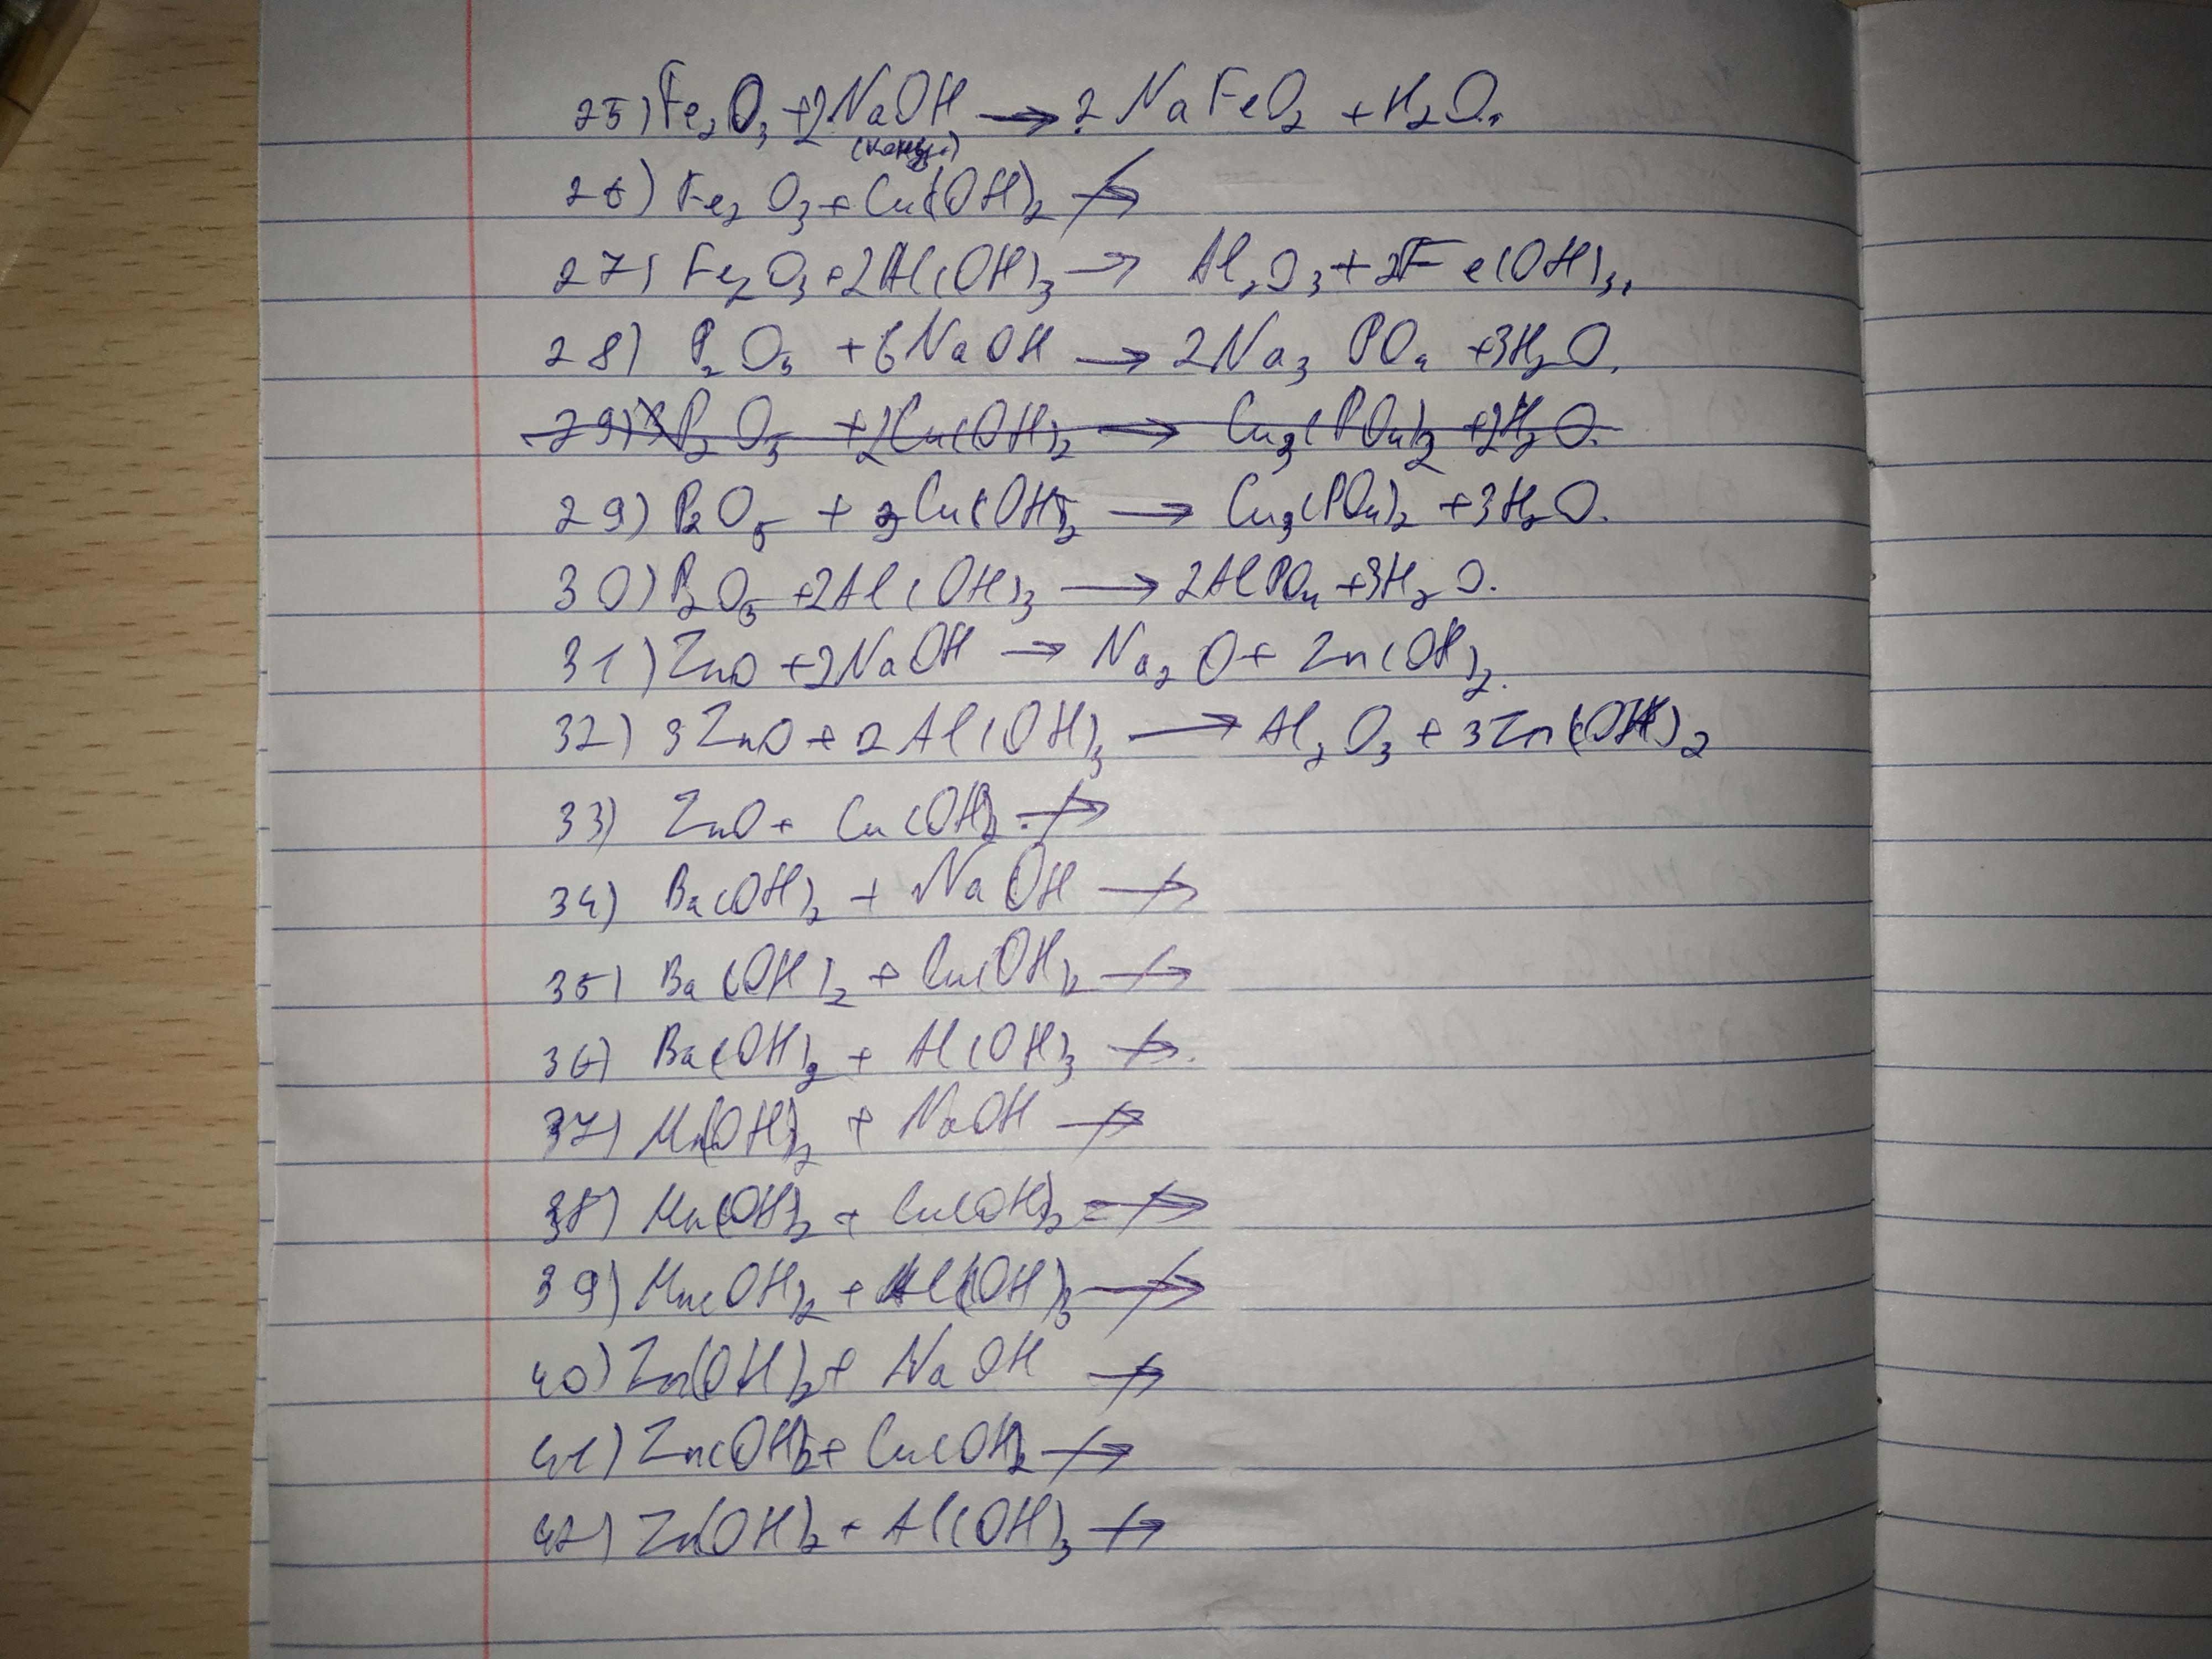 25) Fe₂O₃ + 2NaOH → 2NaFeO₂ + H₂O.
(конц.)
26) Fe₂O₃ + Cu(OH)₂ ↛
27) Fe₂O₃ + 2Al(OH)₃ → Al₂O₃ + 2Fe(OH)₃.
28) P₂O₅ + 6NaOH → 2Na₃PO₄ + 3H₂O.
29) 3P₂O₅ + 2Cu(OH)₂ → Cu₃(PO₄)₂ + 2H₂O.
29) P₂O₅ + 3Cu(OH)₂ → Cu₃(PO₄)₂ + 3H₂O.
30) P₂O₅ + 2Al(OH)₃ → 2AlPO₄ + 3H₂O.
31) ZnO + 2NaOH → Na₂O + Zn(OH)₂.
32) 3ZnO + 2Al(OH)₃ → Al₂O₃ + 3Zn(OH)₂
33) ZnO + Cu(OH)₂ ↛
34) Ba(OH)₂ + NaOH ↛
35) Ba(OH)₂ + Cu(OH)₂ ↛
36) Ba(OH)₂ + Al(OH)₃ ↛.
37) Mn(OH)₂ + NaOH ↛
38) Mn(OH)₂ + Cu(OH)₂ ↛
39) Mn(OH)₂ + Al(OH)₃ ↛
40) Zn(OH)₂ + NaOH ↛
41) Zn(OH)₂ + Cu(OH)₂ ↛
42) Zn(OH)₂ + Al(OH)₃ ↛